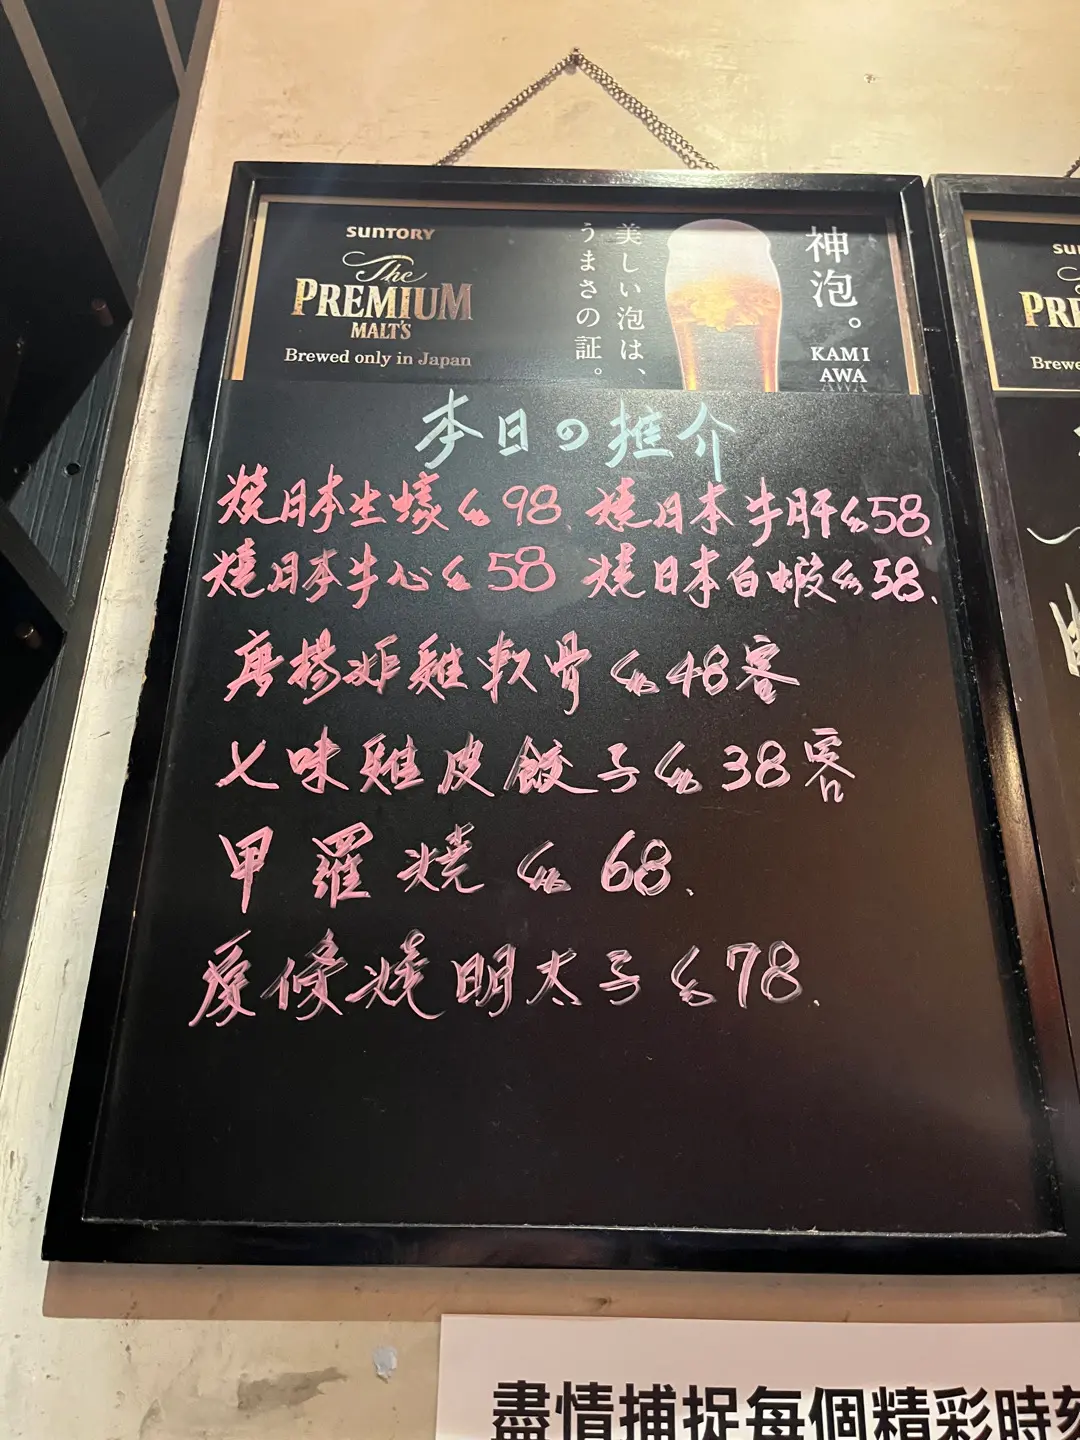 SUNTORY
The
PREMIUM
MALT'S
Brewed only in Japan
美しい泡は、
うまさの証。
神泡。
KAMI
AWA
本日の推介
燒日本生蠔 98 燒日本牛肝 58
燒日本牛心 58 燒日本白蝦 58
唐揚炸雞軟骨 48客
七味雞皮餃子 38客
甲羅燒 68
燒明太子 78
SU
PRE
Brewe
盡情捕捉每個精彩時刻